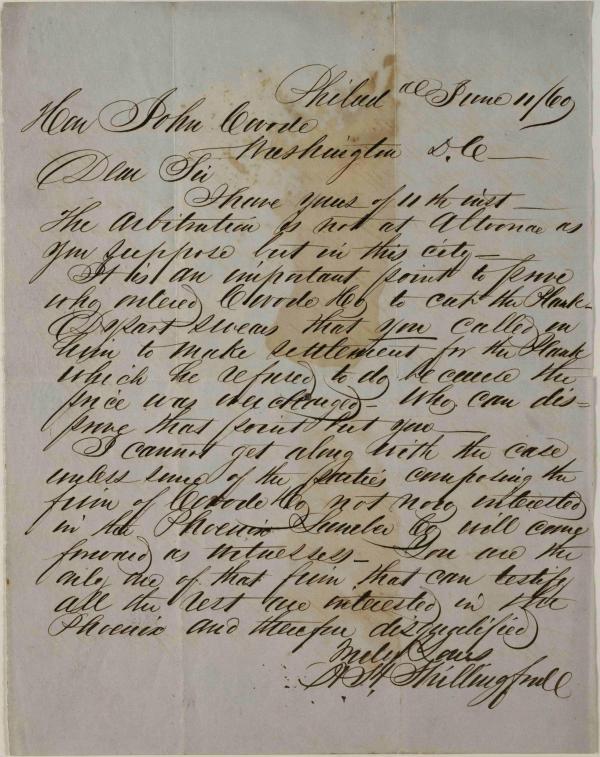 Philad ᵃ June 11/60
Hon John Covode
Washington D.C
Dear Sir
I have yours of 11th inst
The Arbitration is not at Altoona as
you suppose but in this city
It is an important point to prove
who ordered Covode & Co to cut the Plank
Dysart swears that you called on
him to make settlement for the Plank
which he refused to do because the
price was overcharged - Who can dis-
prove that point but you
I cannot get along with the case
unless some of the parties composing the
firm of Covode & Co not now interested
in the Phoenix Lumber Co will come
forward as witnesses - You are the
only one of that firm that can testify
all the rest are interested in the
Phoenix and therefore disqualified
Truly Yours
A H Shillingford